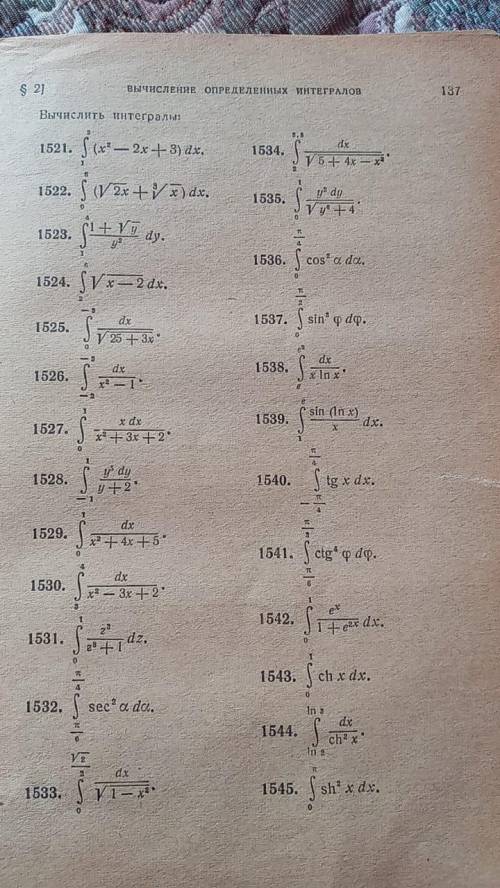 § 2]	ВЫЧИСЛЕНИЕ ОПРЕДЕЛЕННЫХ ИНТЕГРАЛОВ	137
Вычислить интегралы:
1521. ∫₁² (x² — 2x + 3) dx.
1522. ∫₀⁸ (√2x + ∛x) dx.
1523. ∫₁⁴ (1 + √y)/y² dy.
1524. ∫₂⁶ √(x — 2) dx.
1525. ∫₀⁻³ dx/√(25 + 3x).
1526. ∫₋₂⁻³ dx/(x² — 1).
1527. ∫₀¹ x dx/(x² + 3x + 2).
1528. ∫₋₁¹ y⁵ dy/(y + 2).
1529. ∫₀¹ dx/(x² + 4x + 5).
1530. ∫₃⁴ dx/(x² — 3x + 2).
1531. ∫₀¹ z³/(z⁸ + 1) dz.
1532. ∫_{π/6}^{π/4} sec² α dα.
1533. ∫₀^{√2/2} dx/√(1 — x²).
1534. ∫₂^{3,5} dx/√(5 + 4x — x²).
1535. ∫₀¹ y² dy/√(y⁶ + 4).
1536. ∫₀^{π/4} cos² α dα.
1537. ∫₀^{π/2} sin³ φ dφ.
1538. ∫ₑ^{e²} dx/(x ln x).
1539. ∫₁ᵉ sin (ln x)/x dx.
1540. ∫_{—π/4}^{π/4} tg x dx.
1541. ∫_{π/6}^{π/3} ctg⁴ φ dφ.
1542. ∫₀¹ eˣ/(1 + e²ˣ) dx.
1543. ∫₀¹ ch x dx.
1544. ∫_{ln 2}^{ln 3} dx/ch² x.
1545. ∫₀^π sh² x dx.